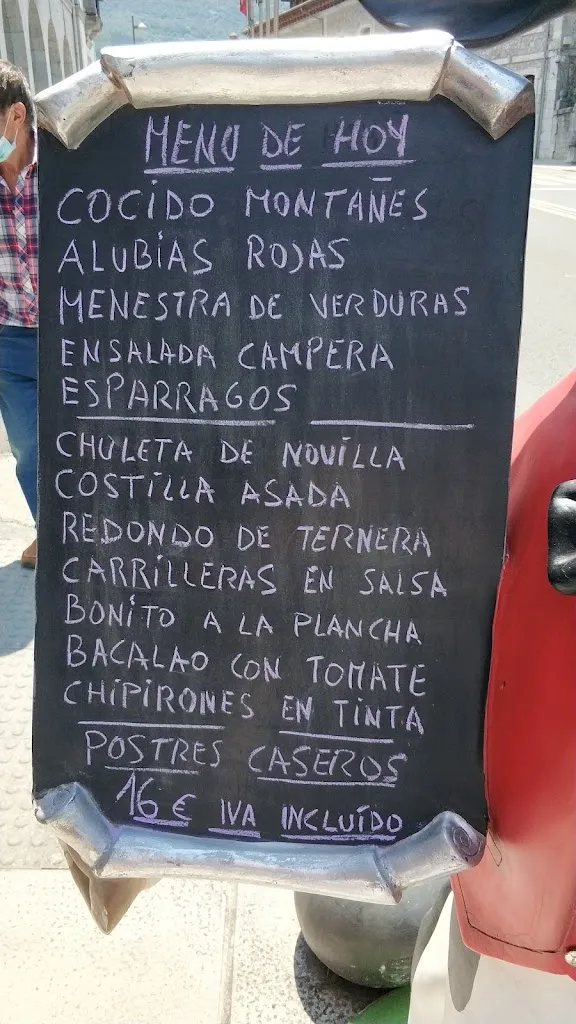 MENU DE HOY
COCIDO MONTAÑES
ALUBIAS ROJAS
MENESTRA DE VERDURAS
ENSALADA CAMPERA
ESPARRAGOS
CHULETA DE NOVILLA
COSTILLA ASADA
REDONDO DE TERNERA
CARRILLERAS EN SALSA
BONITO A LA PLANCHA
BACALAO CON TOMATE
CHIPIRONES EN TINTA
POSTRES CASEROS
16 € IVA INCLUÍDO